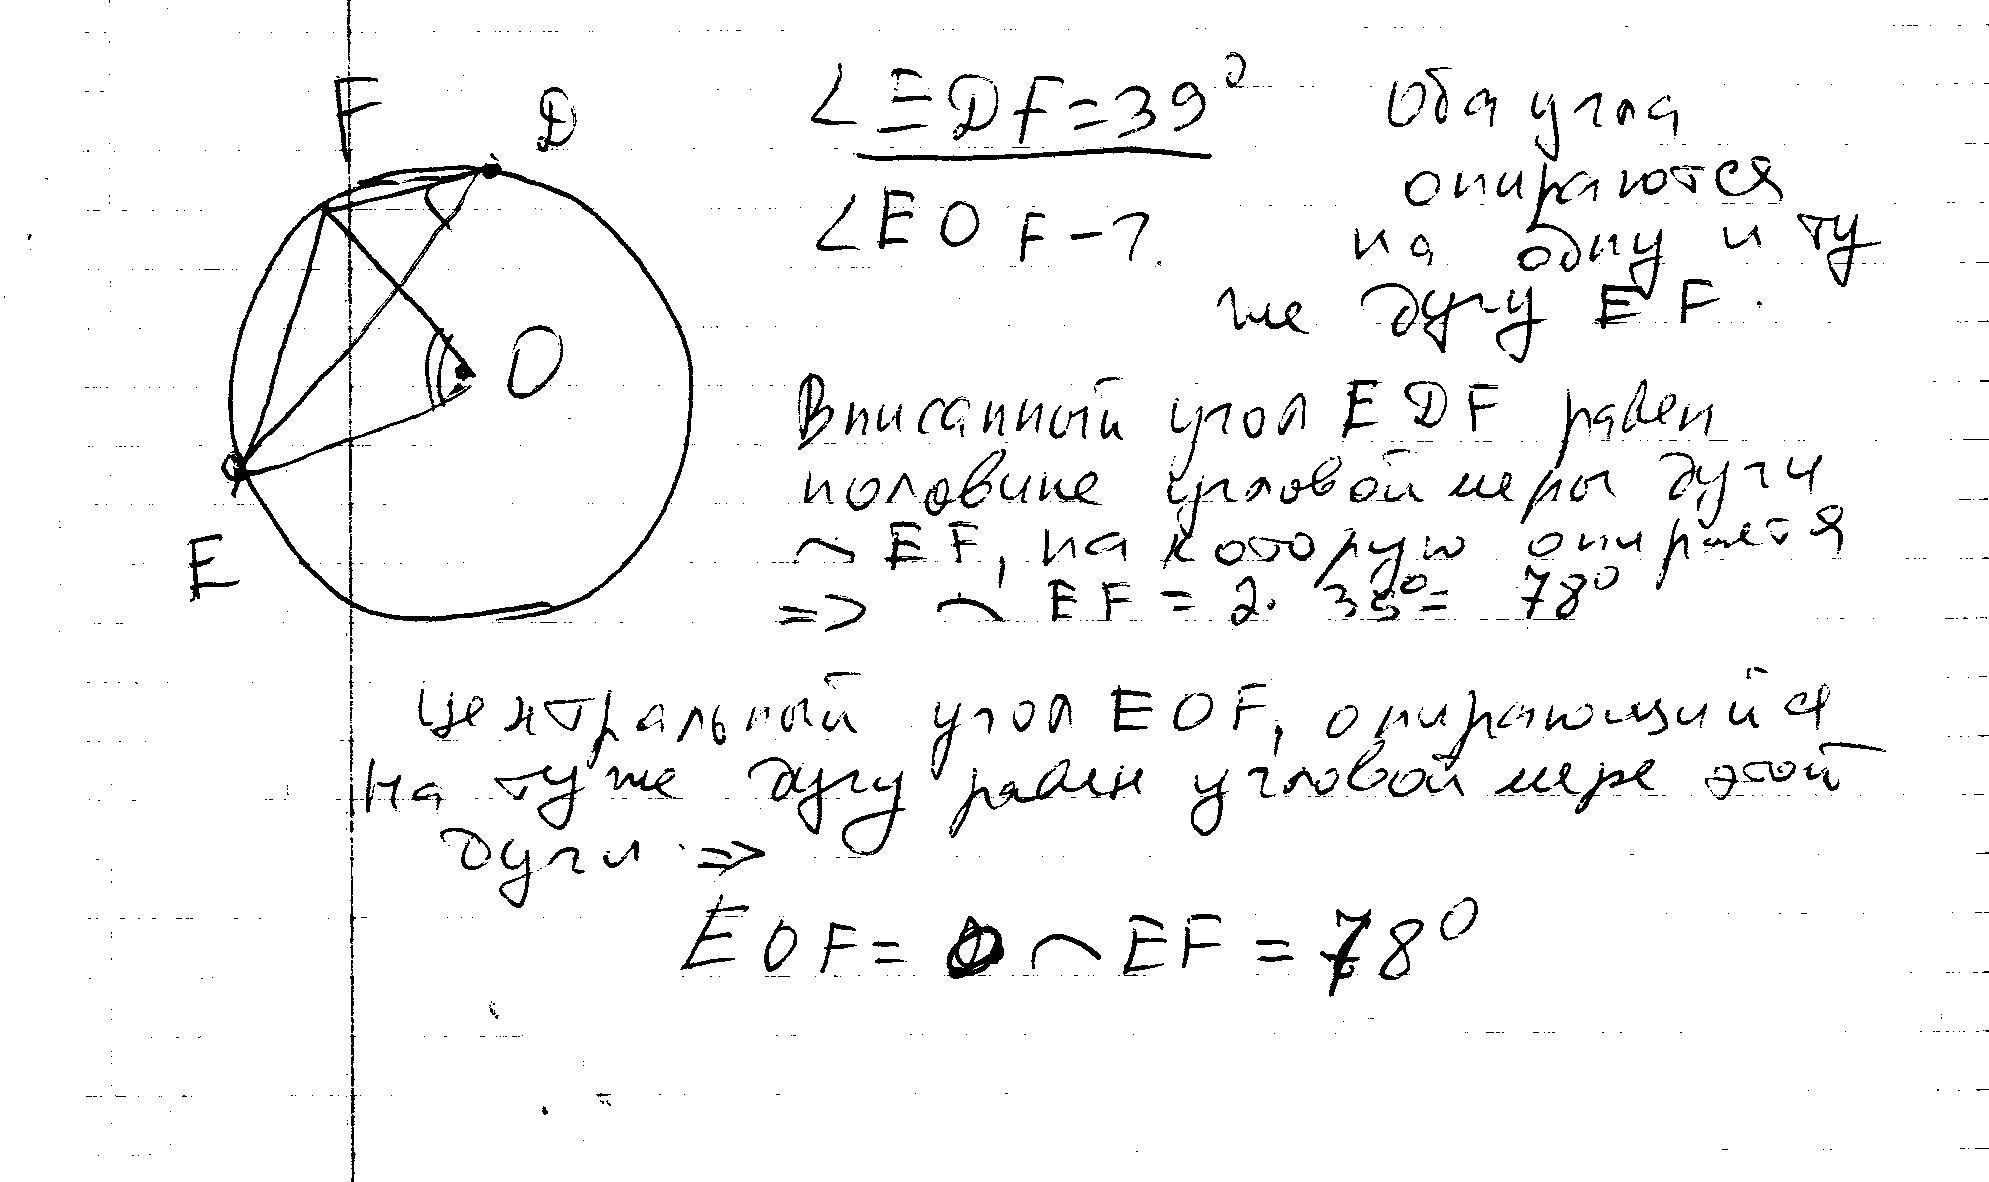 F D
∠EDF=39°
Оба угла
опираются
∠EOF-?
на одну и ту
же дугу EF.
O
Вписанный угол EDF равен
половине угловой меры дуги
⌒EF, на которую опирается
E
=> ⌒EF = 2·39°= 78°
Центральный угол EOF, опирающийся
на ту же дугу равен угловой мере этой
дуги =>
EOF= ⌒EF = 78°